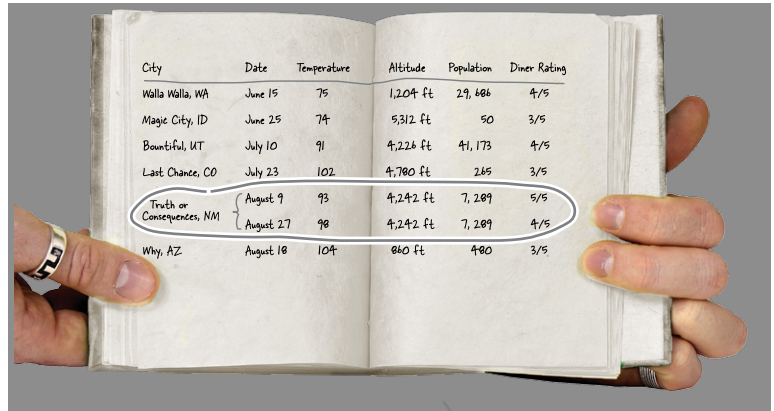 City Date Temperature Altitude Population Diner Rating
Walla Walla, WA June 15 75 1,204 ft 29,686 4/5
Magic City, ID June 25 74 5,312 ft 50 3/5
Bountiful, UT July 10 91 4,226 ft 41,173 4/5
Last Chance, CO July 23 102 4,780 ft 265 3/5
Truth or
Consequences, NM
August 9 93 4,242 ft 7,289 5/5
August 27 98 4,242 ft 7,289 4/5
Why, AZ August 18 104 860 ft 480 3/5